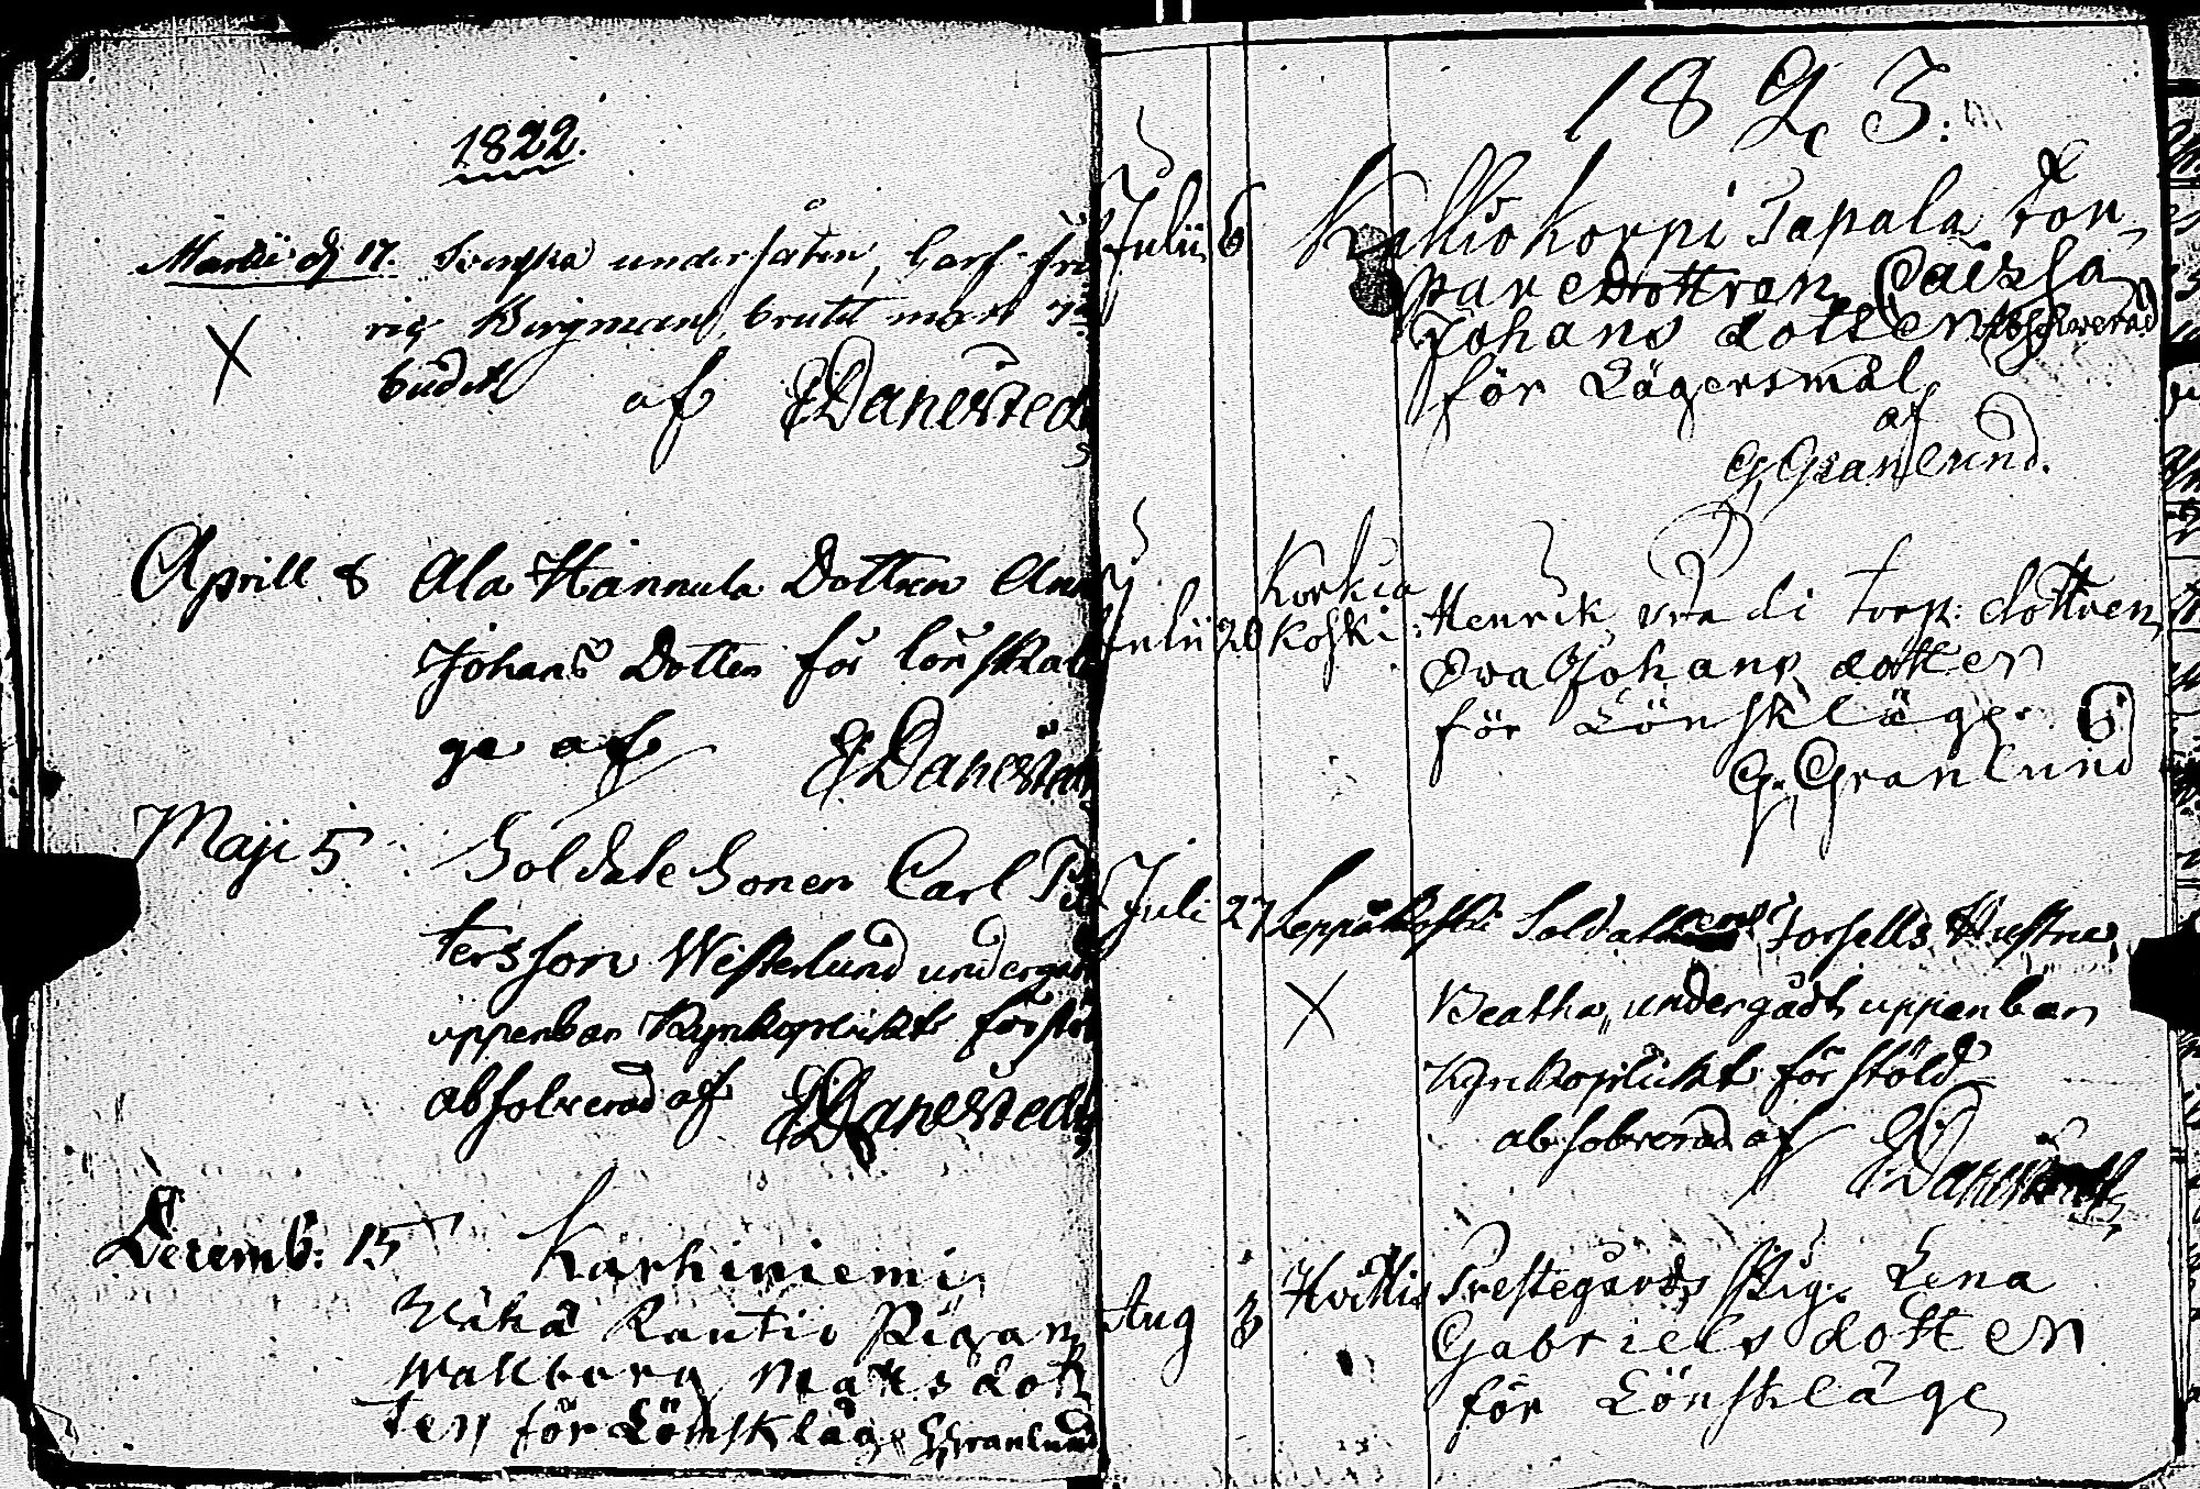 1822.
Martii d 17. Svenska undersåten, Carl Fri
ric Bergman, brutit mot 7de
budet af EDanested
Aprill 8 Ala Hannula Dottren Ann
Johans Dotter för lönskal
ge af EDanested
Maji 5 Soldate Sonen Carl Pet
tersson Westerlund undergåt
uppenbar Kyrkoplickt för stöl
absolverad af EDanested
Decemb: 15 Karhiniemi
Uskä Rautio Pigan
Wallborg Matts dot
ter för Lönsklage GGranlund
1823.
Julii 6 Kalliokorpi Sapala tor
pare Dottren Caisa
Johans dotter Absolverad
för Lägersmål
af
G Granlund.
Julii 20 Korkia
Koski: Henrik torp: dottren
Eva Johans dotter
för Lönskläge.
G. Granlund
Juli 27 Leppäkoski Soldaten Forsells Hustru
Beatha, undergådt uppenbar
Kyrkoplickt för stöld
absolverad af EDanested
Aug 3 Hvittis Prestegårds Pig. Lena
Gabriels dotter
för Lönskläge